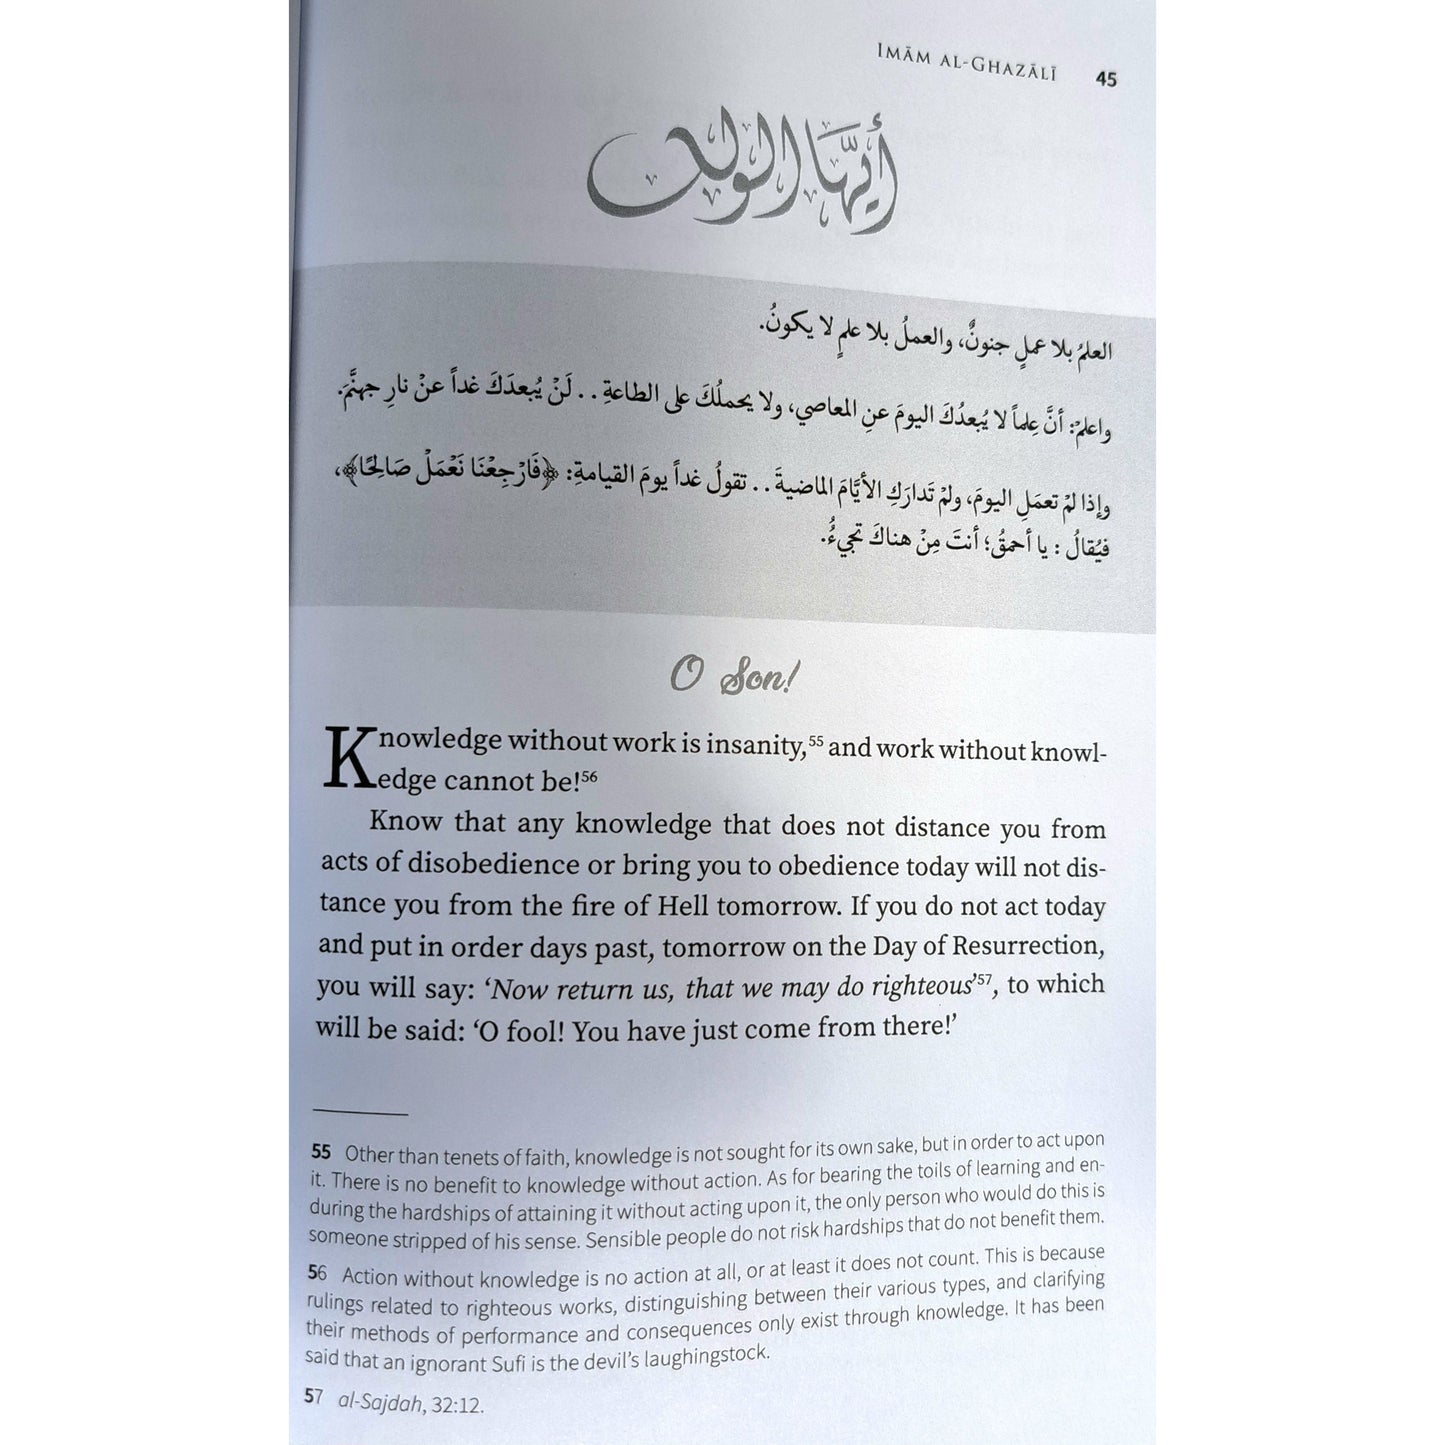 IMĀM AL-GHAZĀLĪ 45
أَيُّهَا الولد
العلمُ بلا عملٍ جنونٌ، والعملُ بلا علمٍ لا يكونُ.
واعلمْ: أنَّ عِلماً لا يُبعدُكَ اليومَ عنِ المعاصي، ولا يحملُكَ على الطاعةِ . . لَنْ يُبعدَكَ غداً عنْ نارِ جهنَّمَ.
وإذا لمْ تعمَلِ اليومَ، ولمْ تَدارَكِ الأيَّامَ الماضيةَ . . تقولُ غداً يومَ القيامةِ: ﴿فَارْجِعْنَا نَعْمَلْ صَالِحًا﴾،
فيُقالُ : يا أحمقُ؛ أنتَ مِنْ هناكَ تجيءُ.
O Son!
Knowledge without work is insanity,⁵⁵ and work without knowl-
edge cannot be!⁵⁶
Know that any knowledge that does not distance you from
acts of disobedience or bring you to obedience today will not dis-
tance you from the fire of Hell tomorrow. If you do not act today
and put in order days past, tomorrow on the Day of Resurrection,
you will say: ‘Now return us, that we may do righteous’⁵⁷, to which
will be said: ‘O fool! You have just come from there!’
55 Other than tenets of faith, knowledge is not sought for its own sake, but in order to act upon
it. There is no benefit to knowledge without action. As for bearing the toils of learning and en-
during the hardships of attaining it without acting upon it, the only person who would do this is
someone stripped of his sense. Sensible people do not risk hardships that do not benefit them.
56 Action without knowledge is no action at all, or at least it does not count. This is because
rulings related to righteous works, distinguishing between their various types, and clarifying
their methods of performance and consequences only exist through knowledge. It has been
said that an ignorant Sufi is the devil’s laughingstock.
57 al-Sajdah, 32:12.